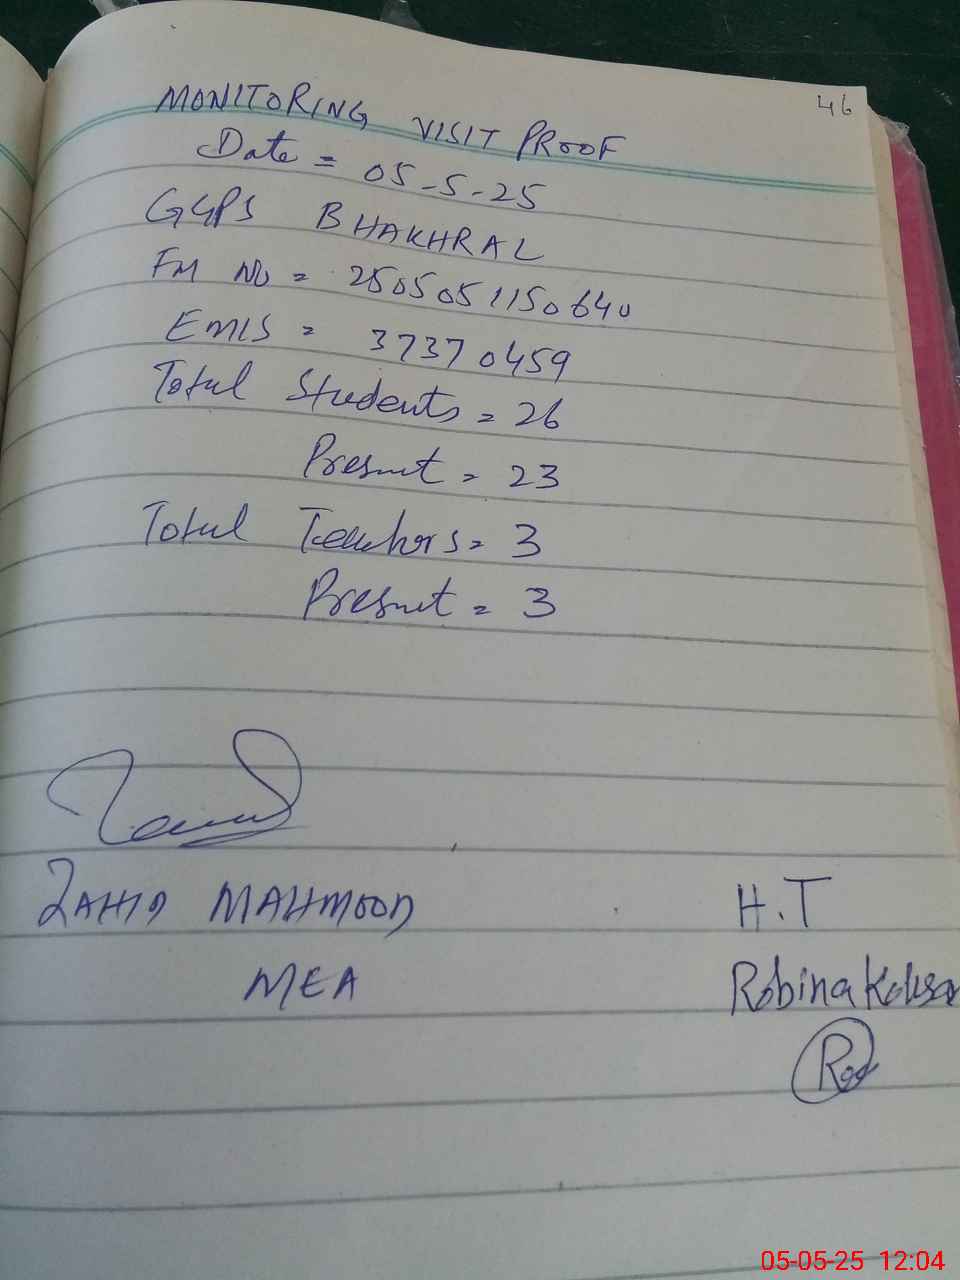 46
MONITORING VISIT PROOF
Date = 05-5-25
GGPS BHAKHRAL
FM NO = 2505051150640
EMIS = 37370459
Total Students = 26
Present = 23
Total Teachers = 3
Present = 3
ZAHID MAHMOOD
MEA
H.T
Robina Kousar
05-05-25 12:04